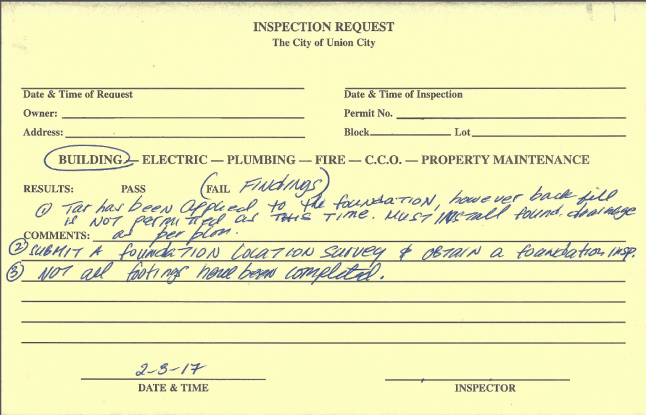 INSPECTION REQUEST
The City of Union City
Date & Time of Request
Date & Time of Inspection
Owner:
Permit No.
Address:
Block
Lot
BUILDING — ELECTRIC — PLUMBING — FIRE — C.C.O. — PROPERTY MAINTENANCE
RESULTS: PASS FAIL Findings
① Tar has been applied to the foundation, however back fill
is NOT permitted as THIS TIME. MUST INstall found. drainage
COMMENTS: as per plan.
② SUBMIT A foundation LOCATION SURVEY & OBTAIN a foundation insp.
③ NOT all footings have been completed.
2-3-17
DATE & TIME
INSPECTOR